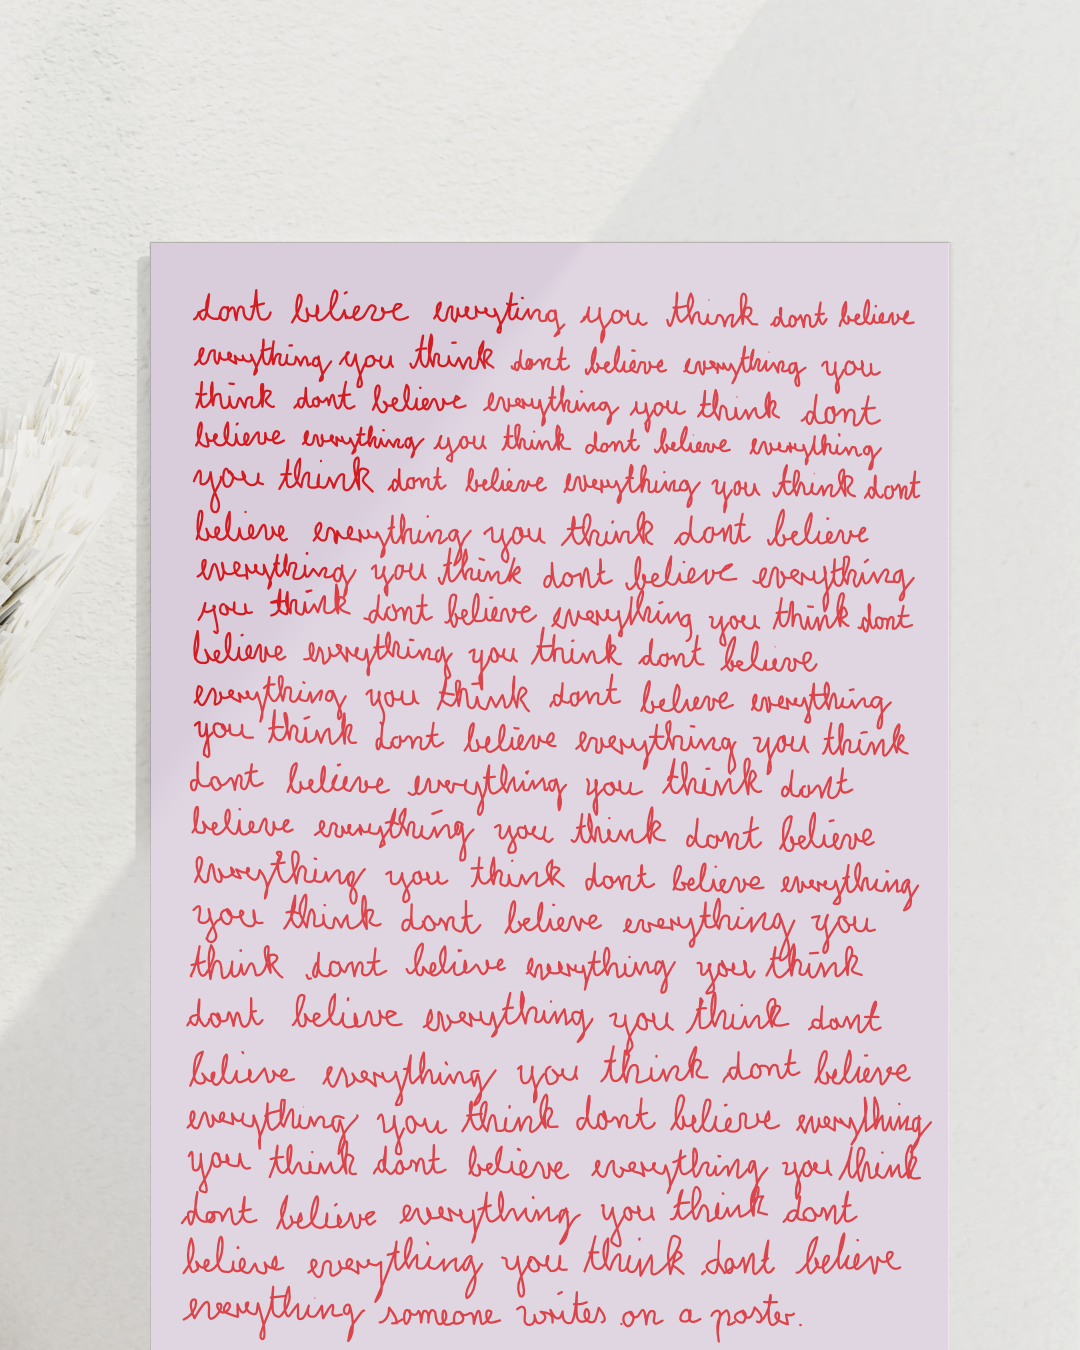 dont believe everyting you think dont believe
everything you think dont believe everything you
think dont believe everything you think dont
believe everything you think dont believe everything
you think dont believe everything you think dont
believe everything you think dont believe
everything you think dont believe everything
you think dont believe everything you think dont
believe everything you think dont believe
everything you think dont believe everything
you think dont believe everything you think
dont believe everything you think dont
believe everything you think dont believe
everything you think dont believe everything
you think dont believe everything you
think dont believe everything you think
dont believe everything you think dont
believe everything you think dont believe
everything you think dont believe everything
you think dont believe everything you think
dont believe everything you think dont
believe everything you think dont believe
everything someone writes on a poster.